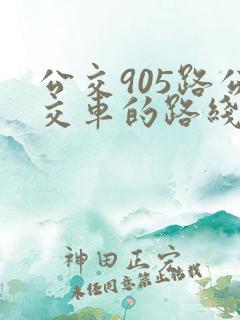 公交905路公
交车的路线
神田正宗
未经同意禁止转载